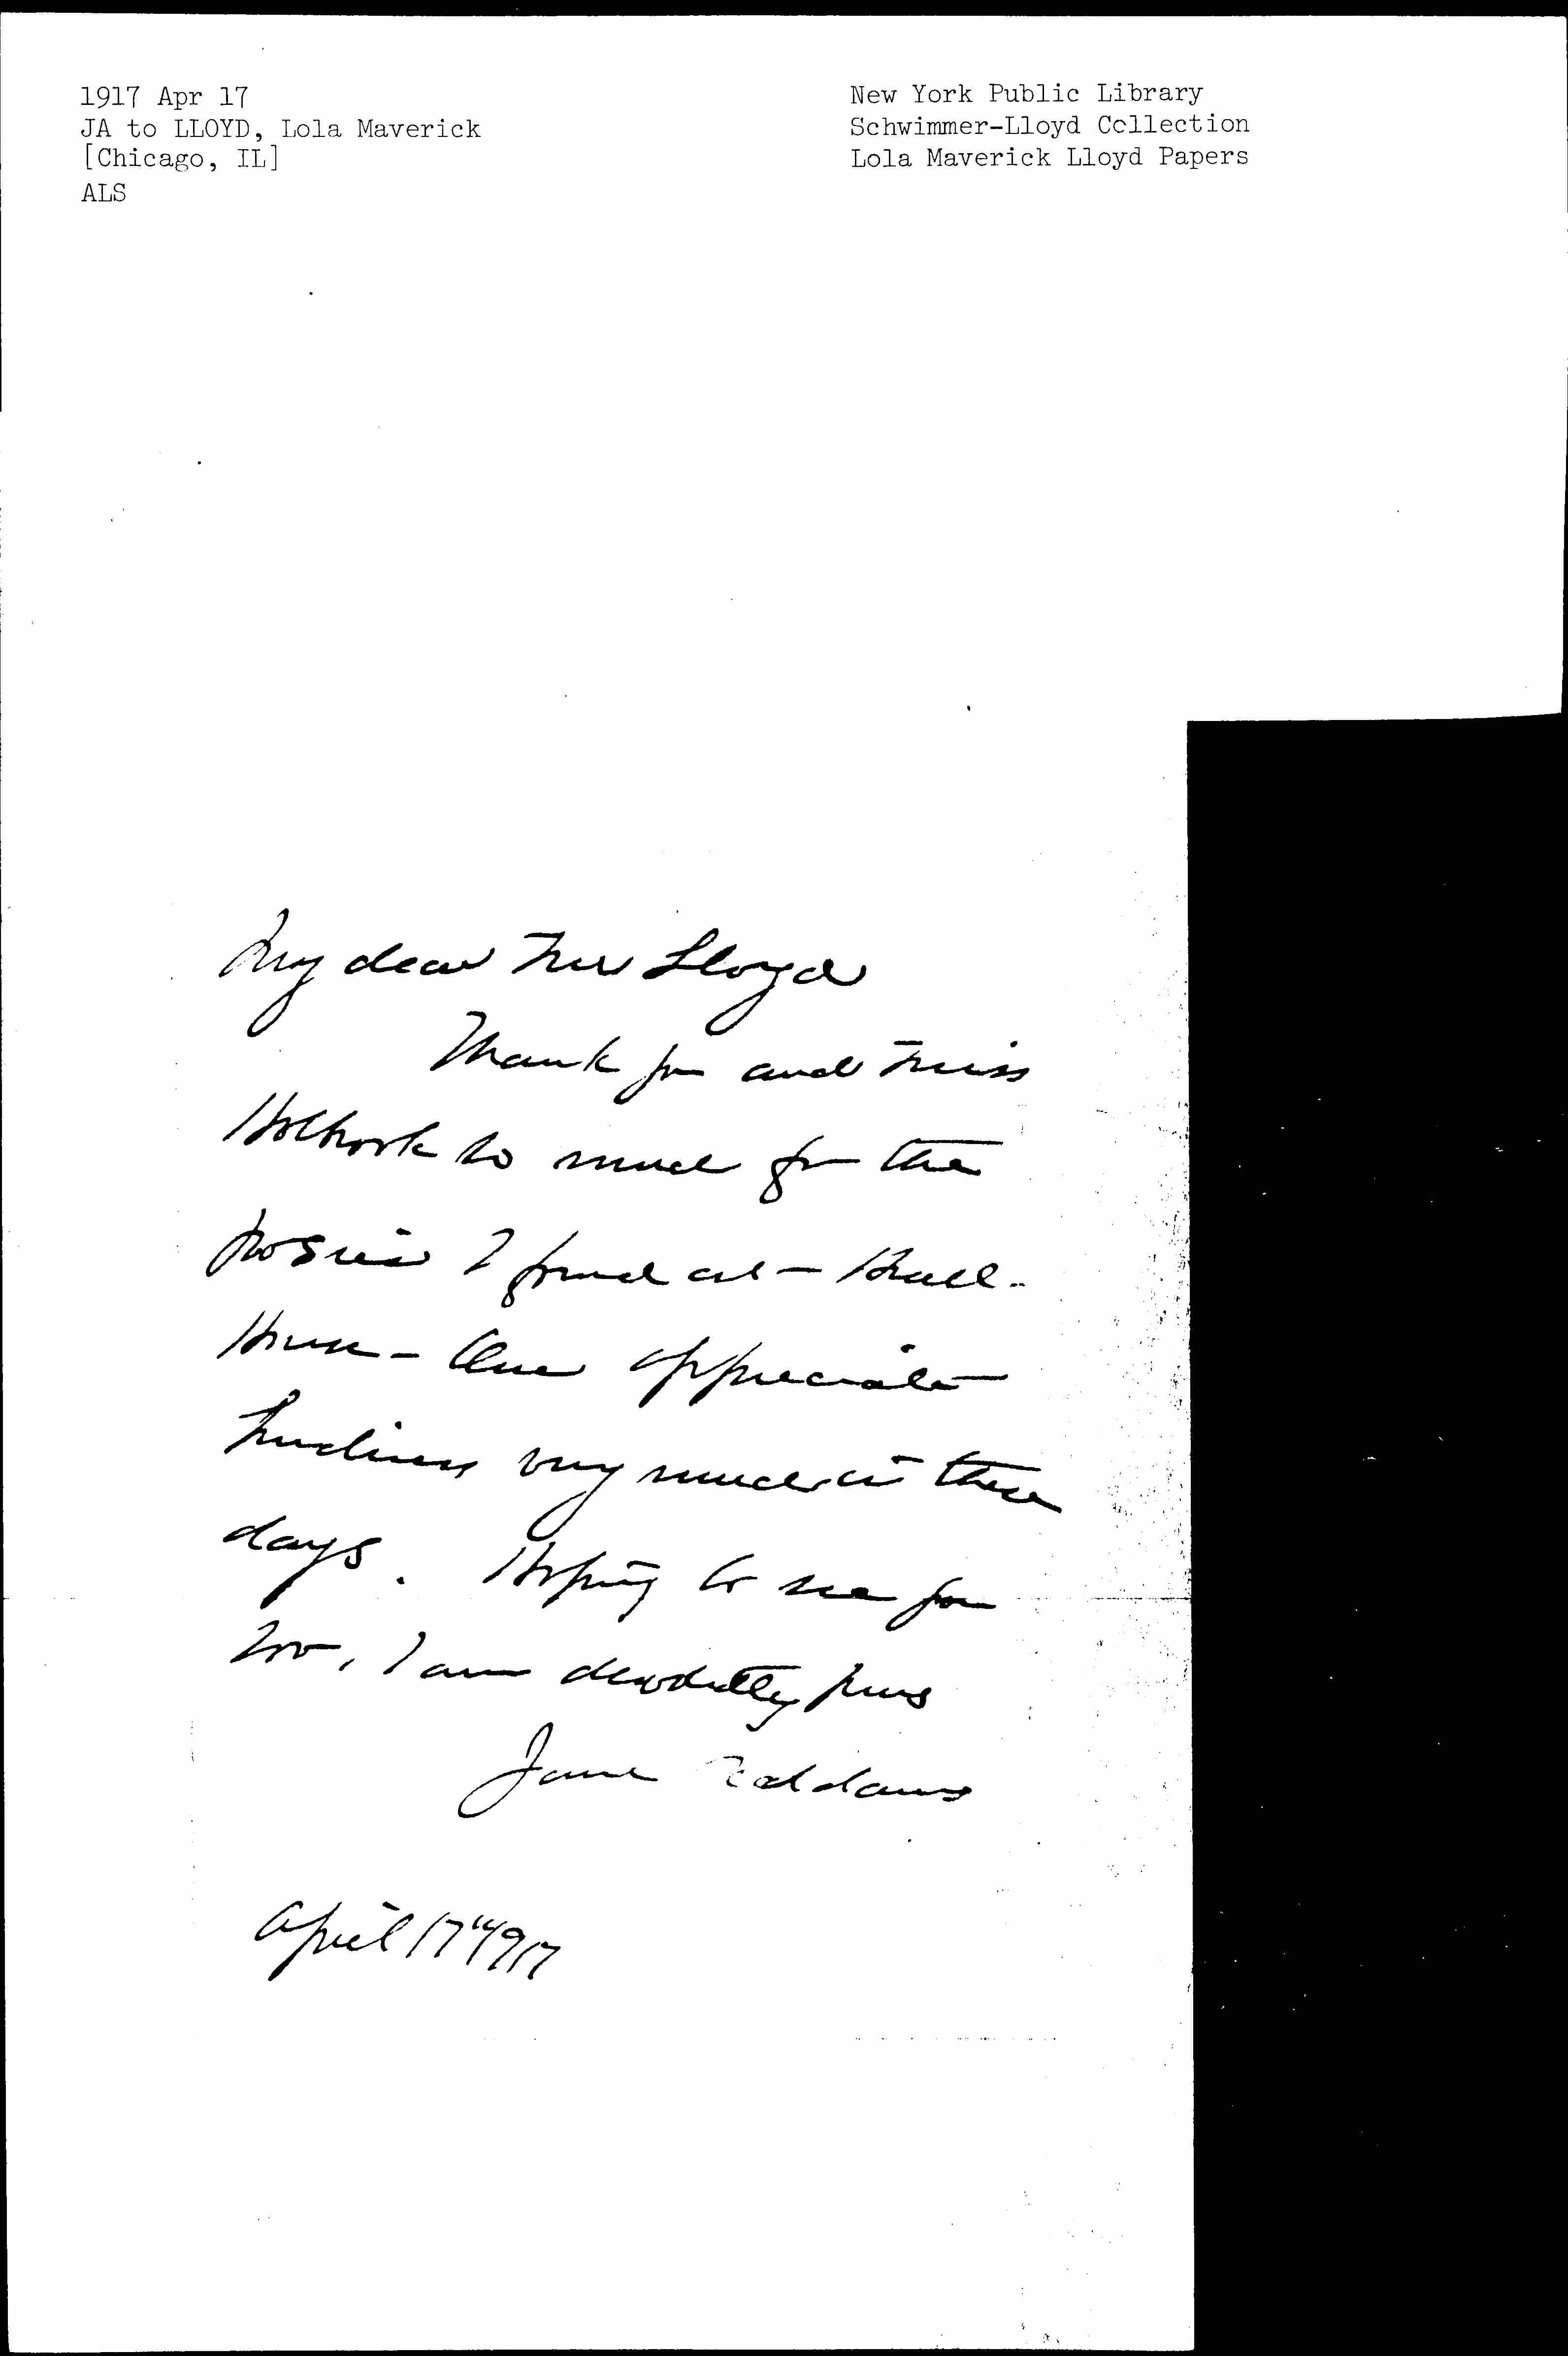 1917 Apr 17
JA to LLOYD, Lola Maverick
[Chicago, IL]
ALS
New York Public Library
Schwimmer-Lloyd Collection
Lola Maverick Lloyd Papers
My dear Mrs Lloyd
Thank you and Miss
Holbrook so much for the
posies I found at Hull-
House - One appreciates
kindness very much in these
days. Hoping to see you
soon, I am devotedly yours
Jane Addams
April 17" 1917